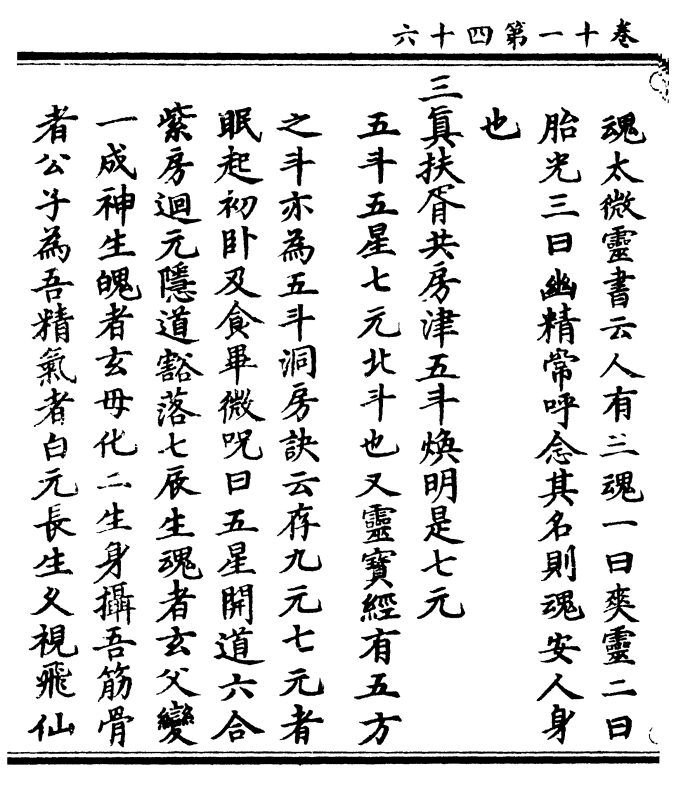 卷十一第四十六
魂太微靈書云人有三魂一曰爽靈二曰
胎光三曰幽精常呼念其名則魂安人身
也
三真扶胥共房津五斗煥明是七元
五斗五星七元北斗也又靈寶經有五方
之斗亦為五斗洞房訣云存九元七元者
眠起初卧及食畢微呪曰五星開道六合
紫房迴元隱道豁落七辰生魂者玄父變
一成神生魄者玄母化二生身攝吾筋骨
者公子為吾精氣者白元長生久視飛仙